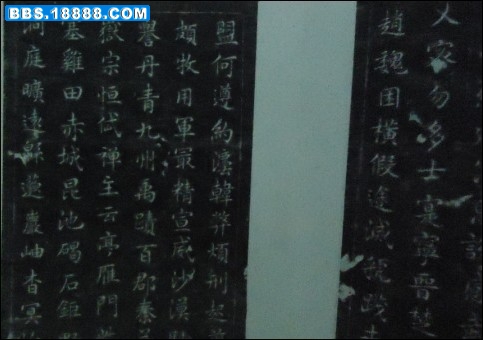 BBS.18888.COM
乂密勿多士寔寧晉楚
趙魏困橫假途滅虢踐
盟何遵約灋韓弊煩刑起
頗牧用軍最精宣威沙漠
譽丹青九州禹蹟百郡秦
嶽宗恒岱禪主云亭雁門
塞雞田赤城昆池碣石鉅
洞庭曠遠緜邈巖岫杳冥